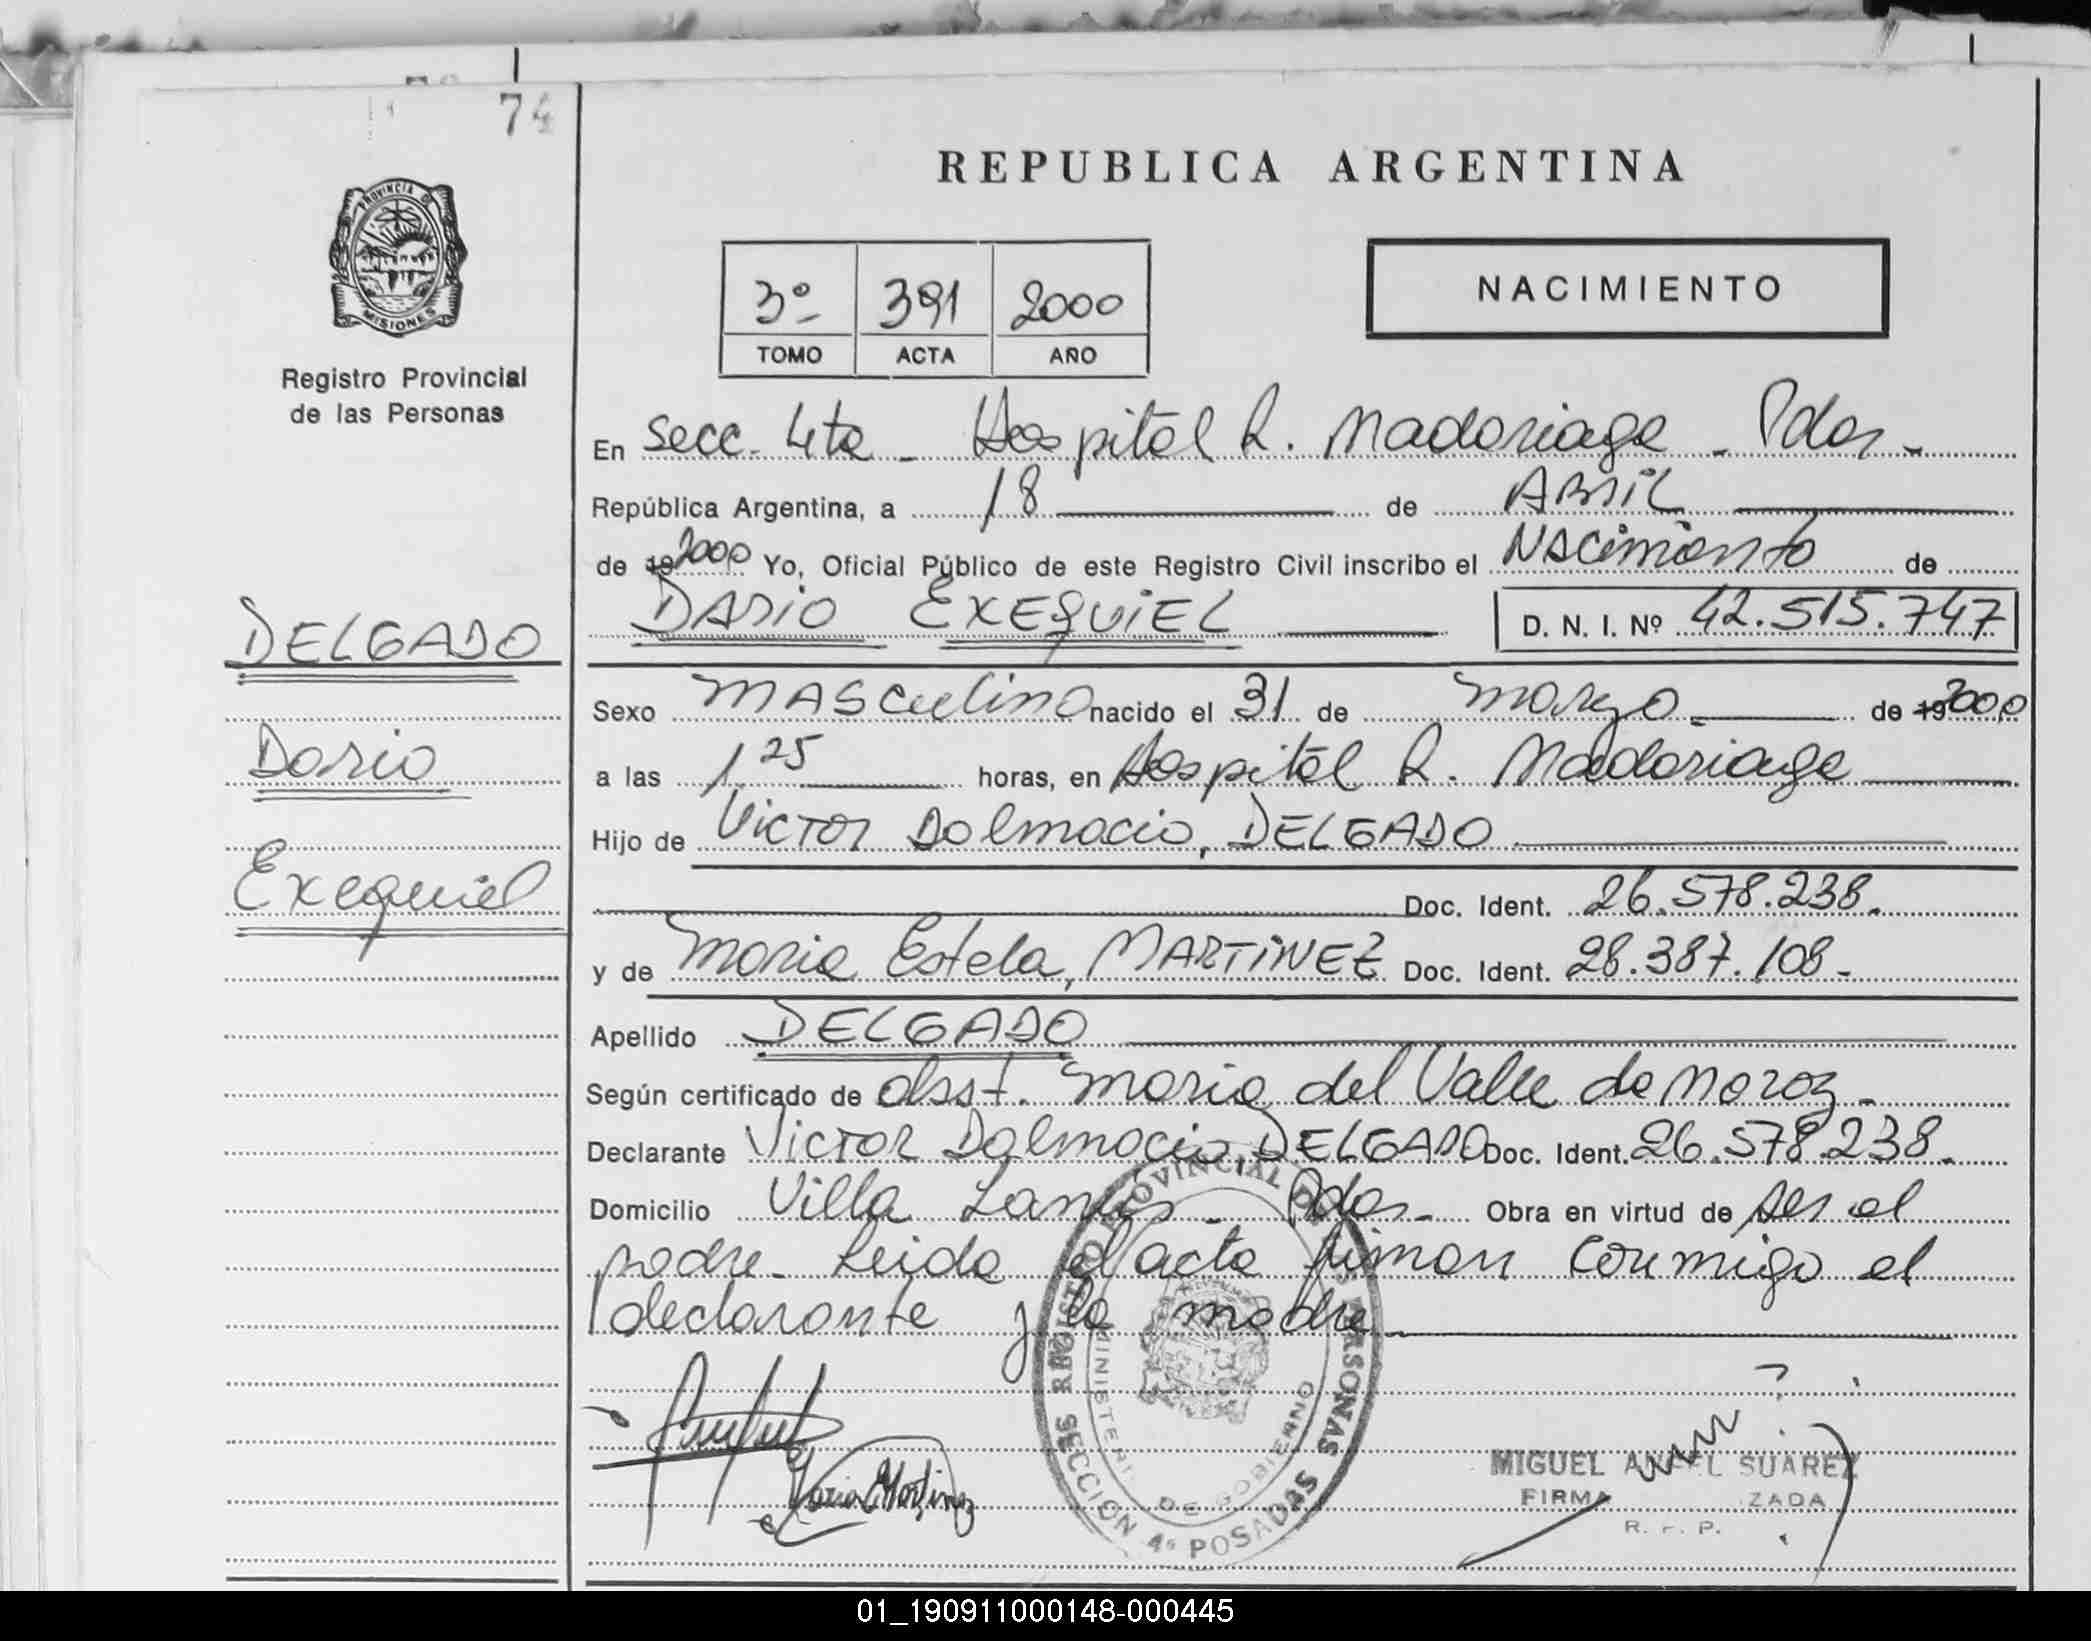 74
REPUBLICA ARGENTINA
PROVINCIA DE
MISIONES
Registro Provincial
de las Personas
3º 391 2000
TOMO ACTA AÑO
NACIMIENTO
En Secc. 4ta - Hospital R. Madariaga - Pdas -
República Argentina, a 18 de Abril
de 19 2000 Yo, Oficial Público de este Registro Civil inscribo el Nacimiento de
DARIO EXEQUIEL D. N. I. Nº 42.515.747
DELGADO
Dario
Exequiel
Sexo Masculino nacido el 31 de Marzo de 19 2000
a las 1 25 horas, en Hospital R. Madariaga
Hijo de Victor Dalmacio, DELGADO
Doc. Ident. 26.578.238.
y de Maria Estela, MARTINEZ Doc. Ident. 28.387.108.-
Apellido DELGADO
Según certificado de obst. Maria del Valle de
Declarante Victor Dalmacio DELGADO Doc. Ident. 26.578.238.
Domicilio Villa Lanus - Pdas - Obra en virtud de ser el
padre - Leida el acta firman conmigo el
declarante y la madre
REGISTRO PROVINCIAL DE LAS PERSONAS
MINISTERIO DE GOBIERNO
SECCION 4ª POSADAS
Maria E Martinez
MIGUEL ANGEL SUAREZ
R. P.
01_190911000148-000445